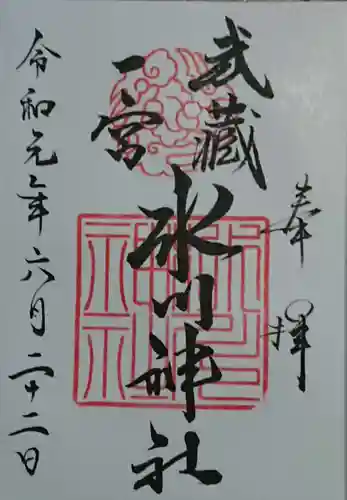 奉拝
武蔵
一宮
氷川神社
令和元年六月二十二日